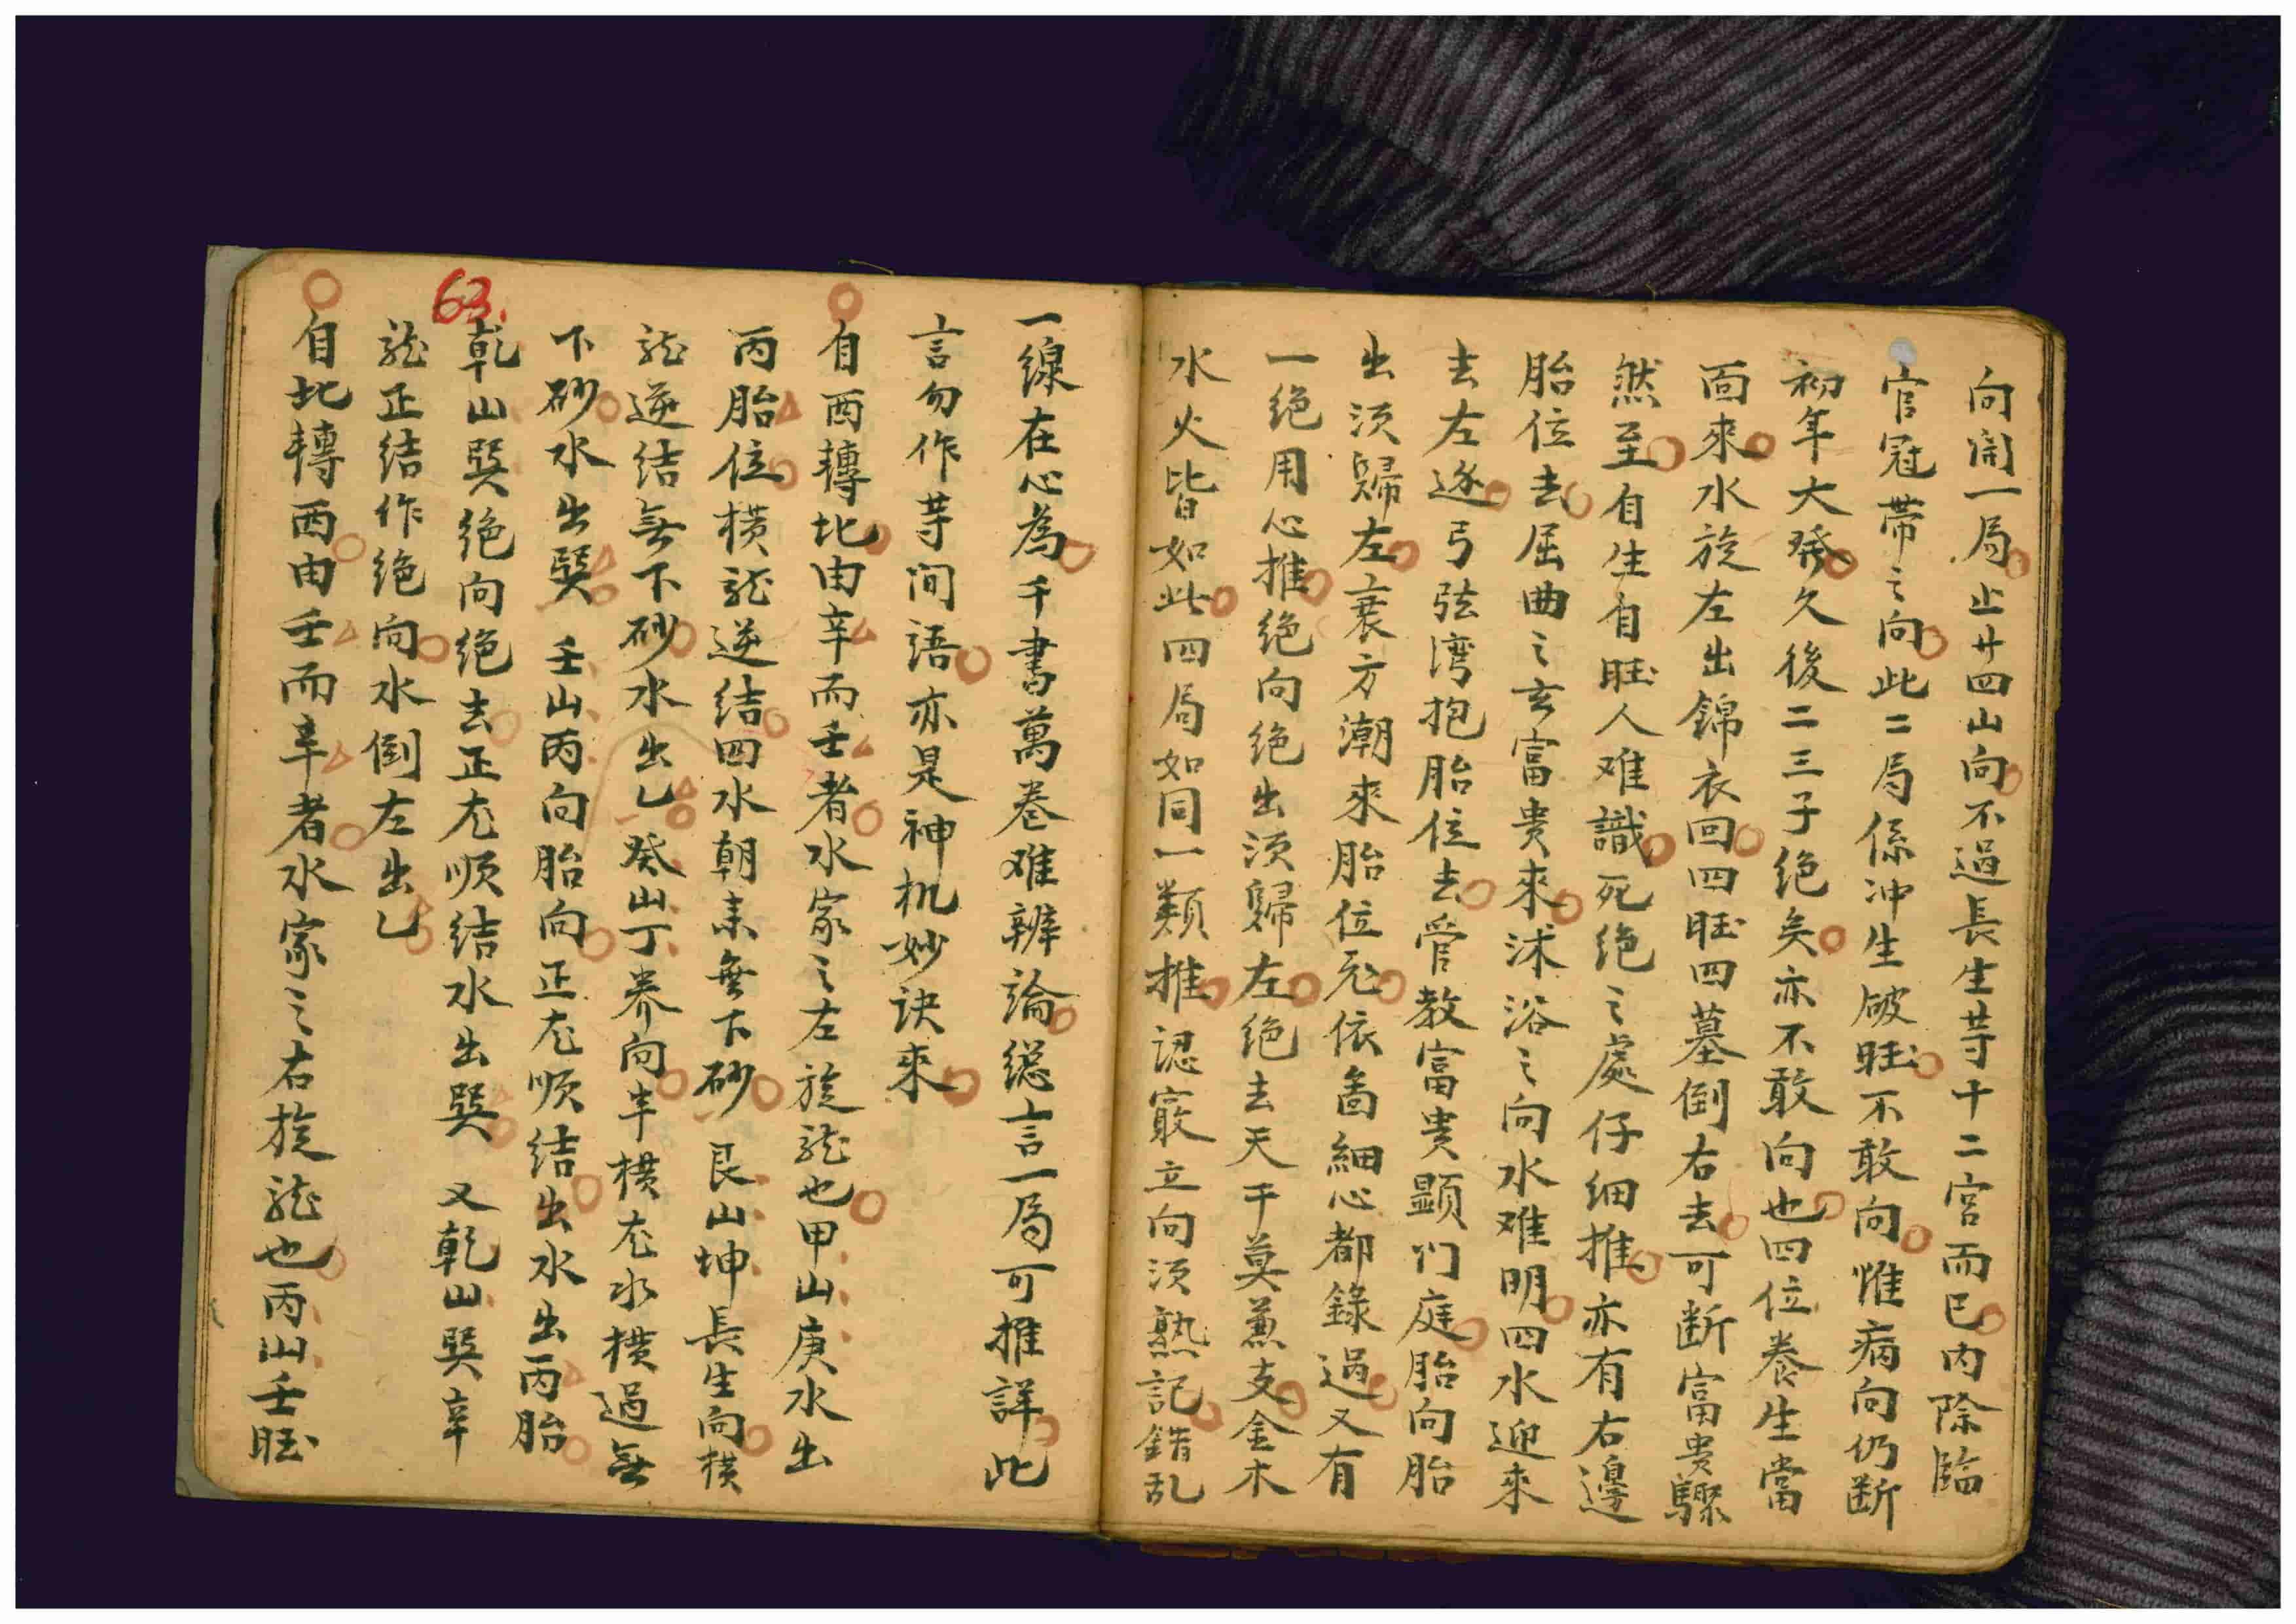 向開一局止廿四山向不過長生荨十二宮而已内除臨
官冠帶之向此二局係冲生破旺不敢向惟病向仍断
初年大發久後二三子绝矣亦不敢向也四位養生當
面來水旋左出錦衣回四旺四墓倒右去可断富貴驟
然至自生自旺人难識死绝之處仔细推亦有右邊
胎位去屈曲之玄富貴來沭浴之向水难明四水迎來
去左逐弓弦湾抱胎位去管教富贵顯门庭胎向胎
出須歸左衰方潮來胎位死依啚細心都錄過又有
一绝用心推绝向绝出須歸左绝去天干莫兼支金木
水火皆如此四局如同一類推認㝡立向須熟記錯乱
一線在心為千書萬卷难辨論総言一局可推詳此
言勿作荨间語亦是神机妙訣來
自西轉北由辛而壬者水家之左旋龍也甲山庚水出
丙胎位横龍逆结四水朝來無下砂艮山坤長生向横
龍逆结無下砂水出乙癸山丁养向半横龙水横過無
下砂水出巽 壬山丙向胎向正龙顺结出水出丙胎
乾山巽绝向绝去正龙顺结水出巽 又乾山巽辛
龍正结作绝向水倒左出乙
63.
自北轉西由壬而辛者水家之右旋龍也丙山壬旺